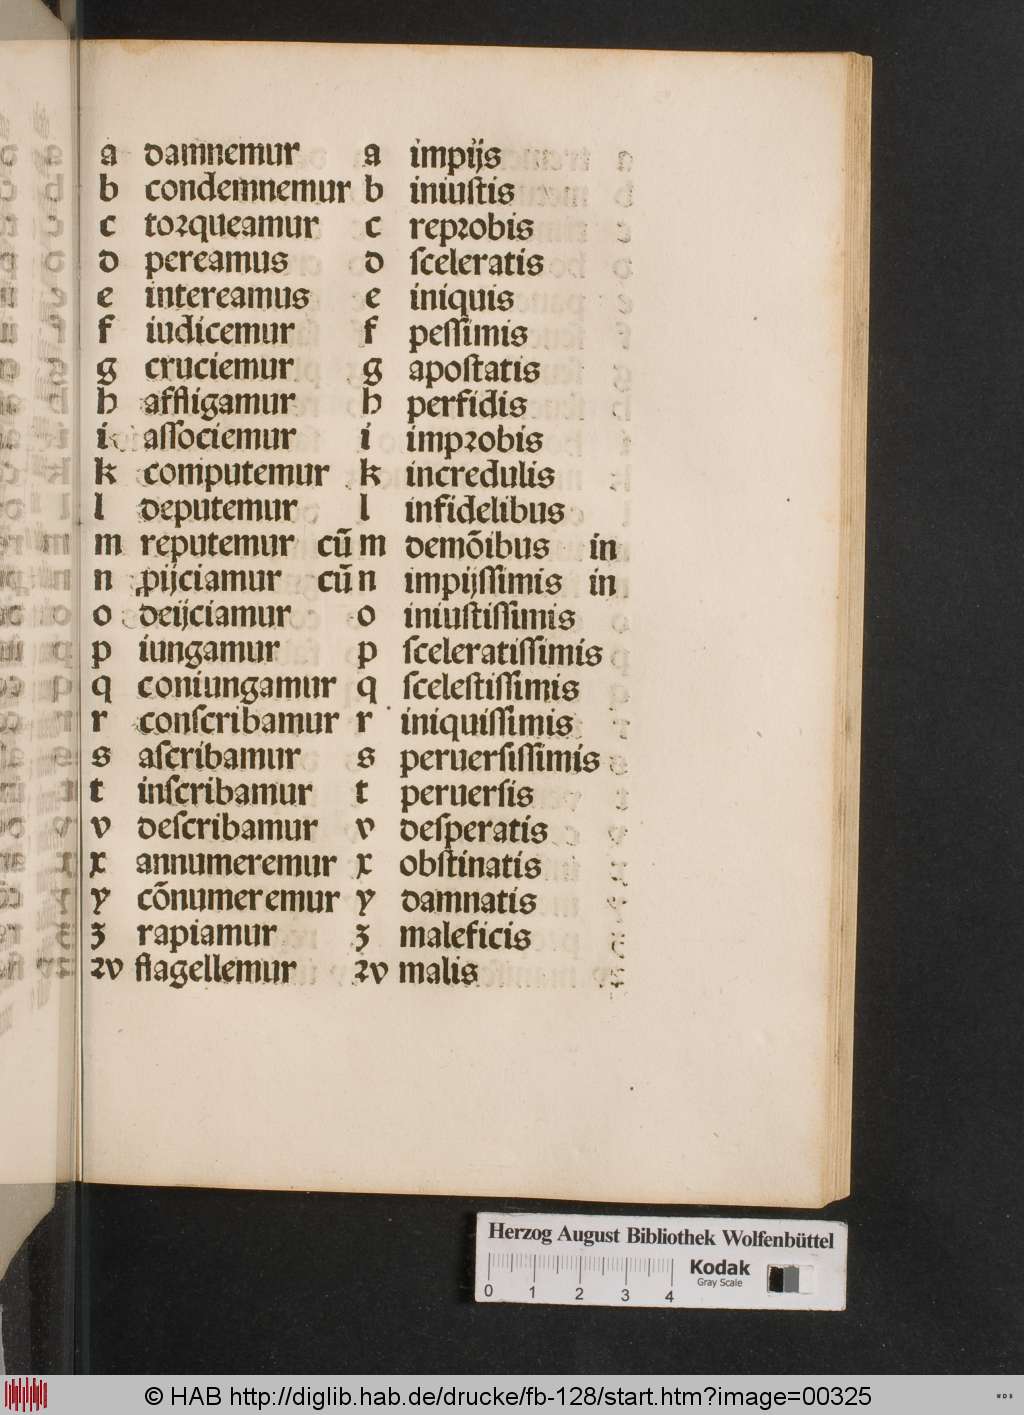 a damnemur a impijs
b condemnemur b iniuſtis
c toꝛqueamur c repꝛobis
d pereamus d ſceleratis
e intereamus e iniquis
f iudicemur f peſſimis
g cruciemur g apoſtatis
h affligamur h perfidis
i aſſociemur i impꝛobis
k computemur k incredulis
l deputemur l infidelibus
m reputemur cũ m demõibus in
n ꝓijciamur cũ n impijſſimis in
o deijciamur o iniuſtiſſimis
p iungamur p ſceleratiſſimis
q coniungamur q ſceleſtiſſimis
r conſcribamur r iniquiſſimis
s aſcribamur s peruerſiſſimis
t inſcribamur t peruerſis
v deſcribamur v deſperatis
x annumeremur x obſtinatis
y cõnumeremur y damnatis
ʒ rapiamur ʒ maleficis
ꝛv flagellemur ꝛv malis
Herzog August Bibliothek Wolfenbüttel
Kodak
Gray Scale
0 1 2 3 4
© HAB http://diglib.hab.de/drucke/fb-128/start.htm?image=00325